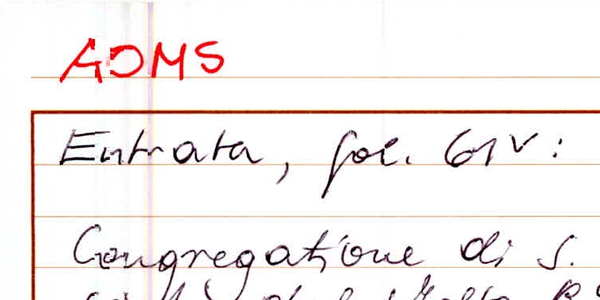 ADMS
Entrata, fol. 61v:
Congregatione di S.